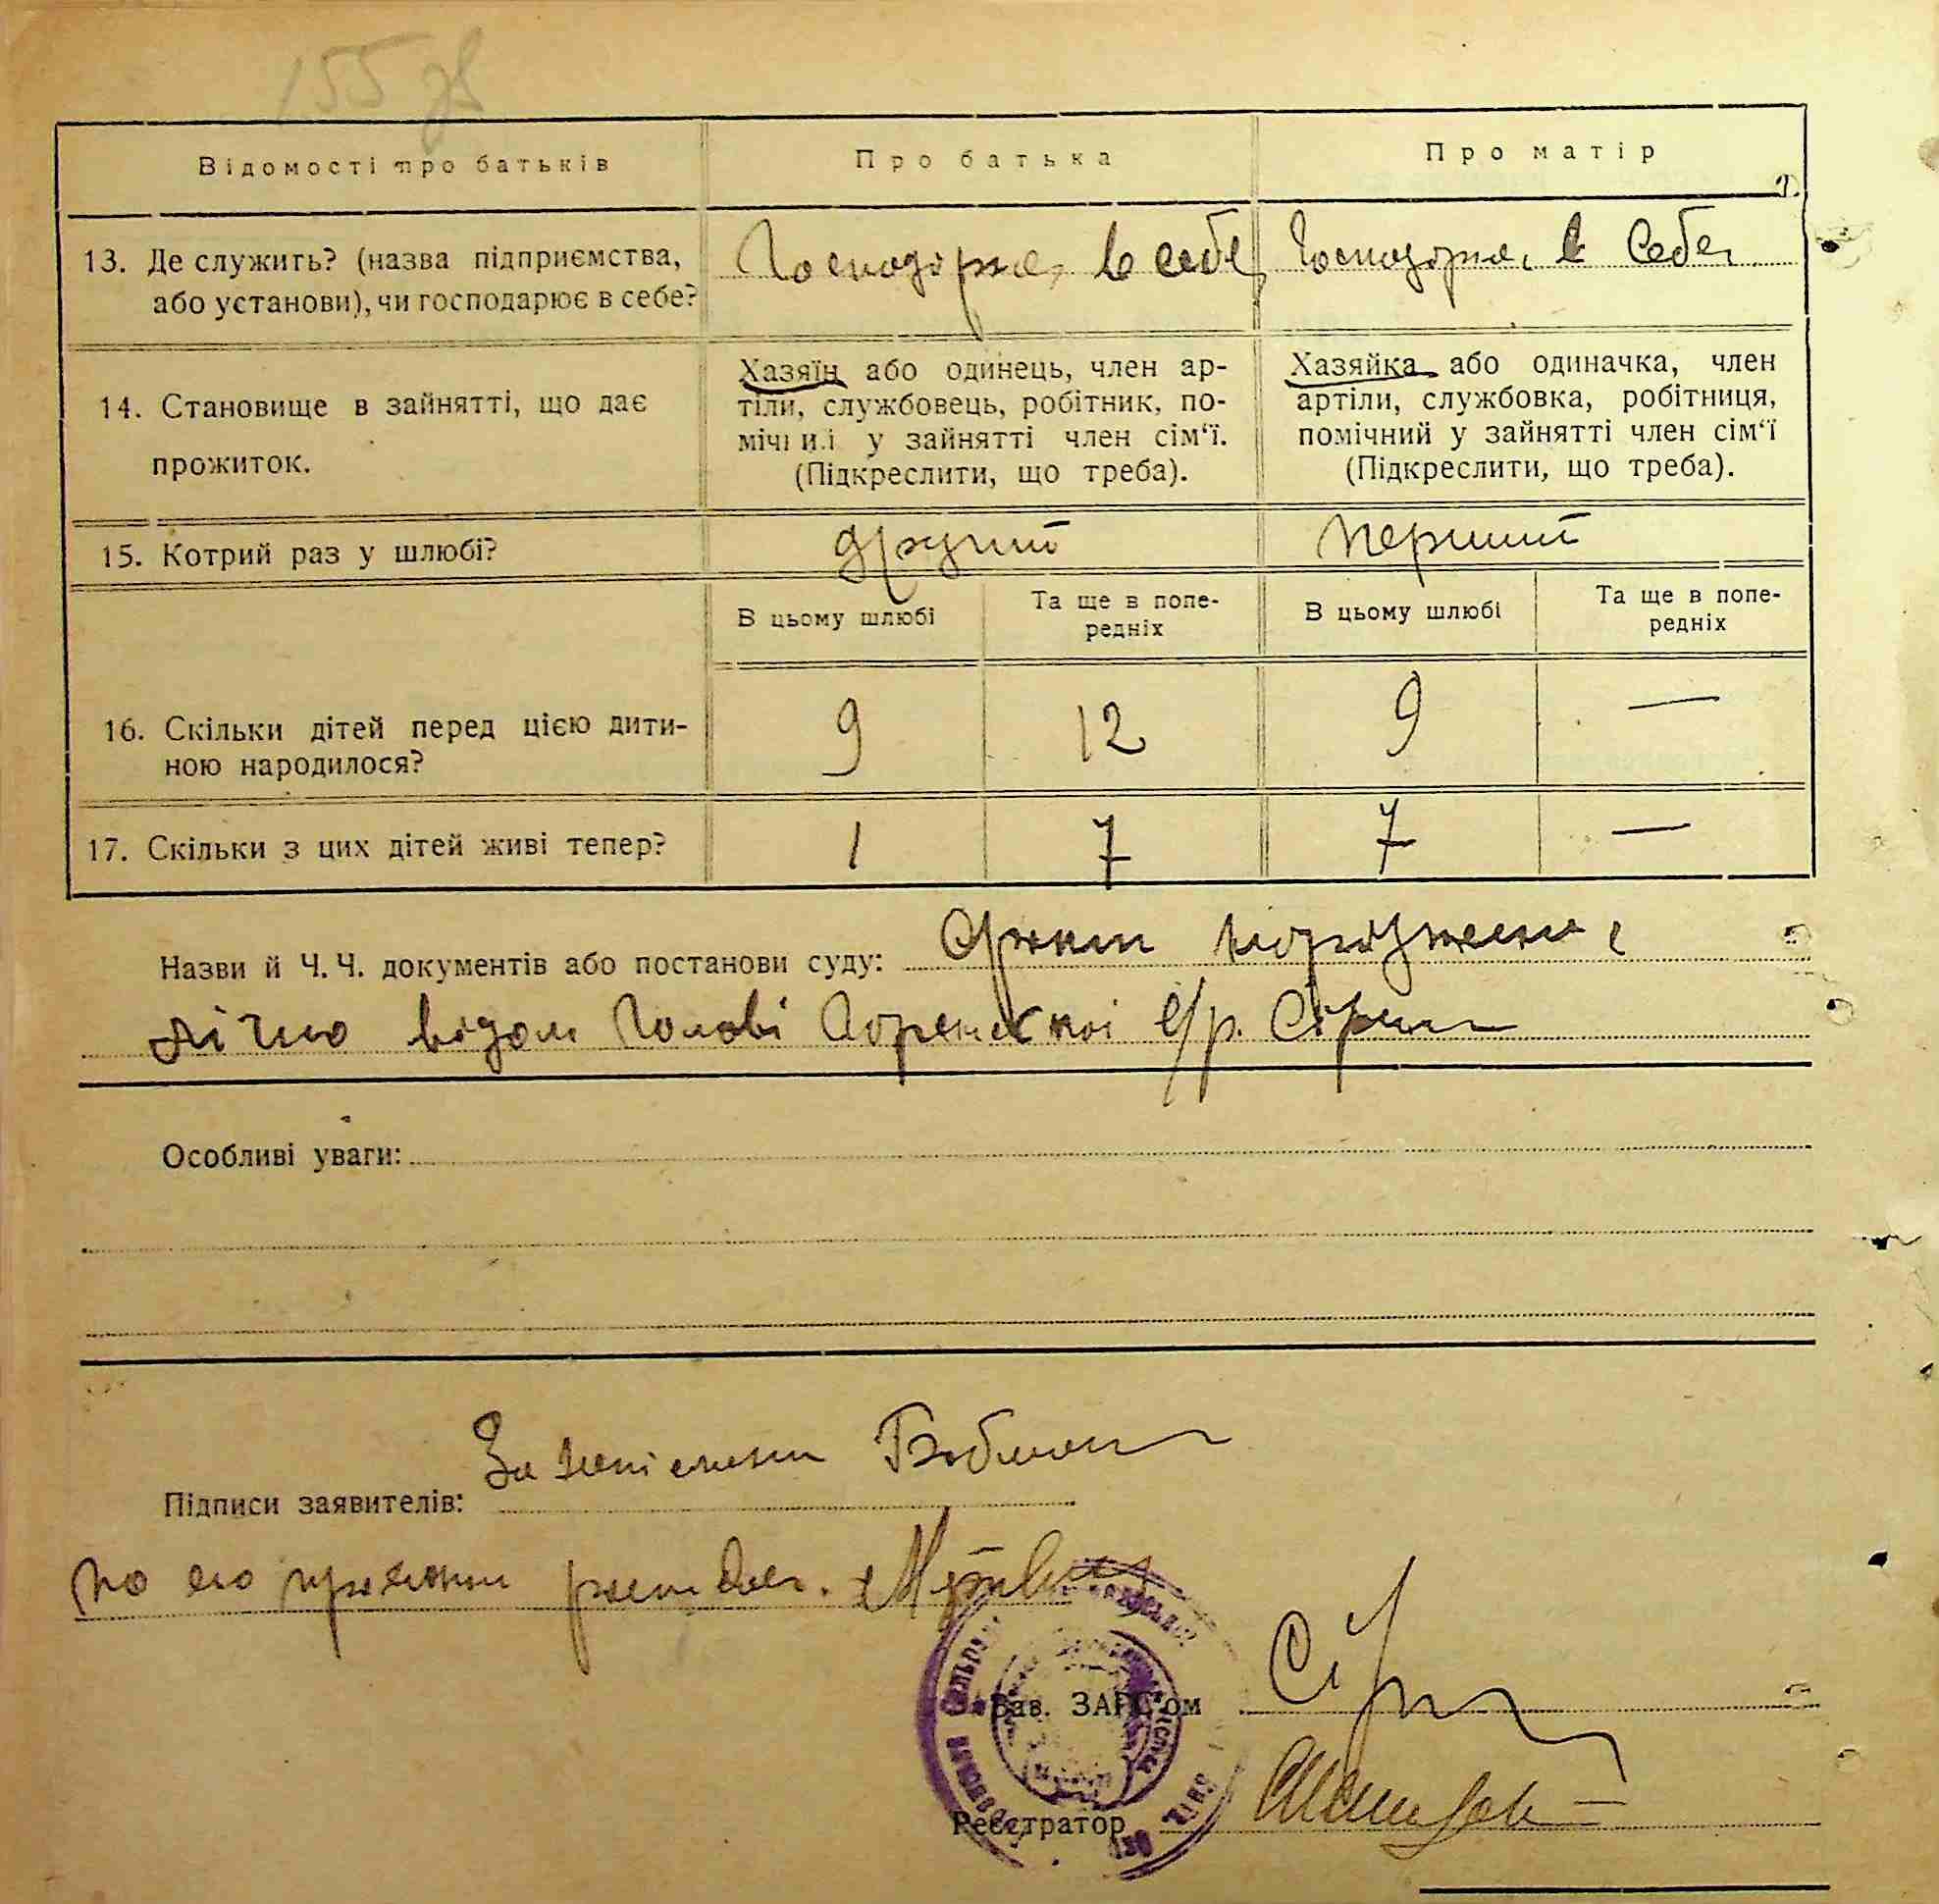 155 зв
Відомості про батьків
Про батька
Про матір
13. Де служить? (назва підприємства,
або установи), чи господарює в себе?
Господорює в себе
Господорює в себе
14. Становище в зайнятті, що дає
прожиток.
Хазяїн або одинець, член ар-
тіли, службовець, робітник, по-
мічний у зайнятті член сім‘ї.
(Підкреслити, що треба).
Хазяйка або одиначка, член
артіли, службовка, робітниця,
помічний у зайнятті член сім‘ї
(Підкреслити, що треба).
15. Котрий раз у шлюбі?
другий
перший
В цьому шлюбі
Та ще в попе-
редніх
В цьому шлюбі
Та ще в попе-
редніх
16. Скільки дітей перед цією дити-
ною народилося?
9
12
9
—
17. Скільки з цих дітей живі тепер?
1
7
7
—
Назви й Ч. Ч. документів або постанови суду:
відом Голові с/р. Сірий
Особливі уваги:
Підписи заявителів:
по его
Зав. ЗАГС‘ом
Сір
Реєстратор